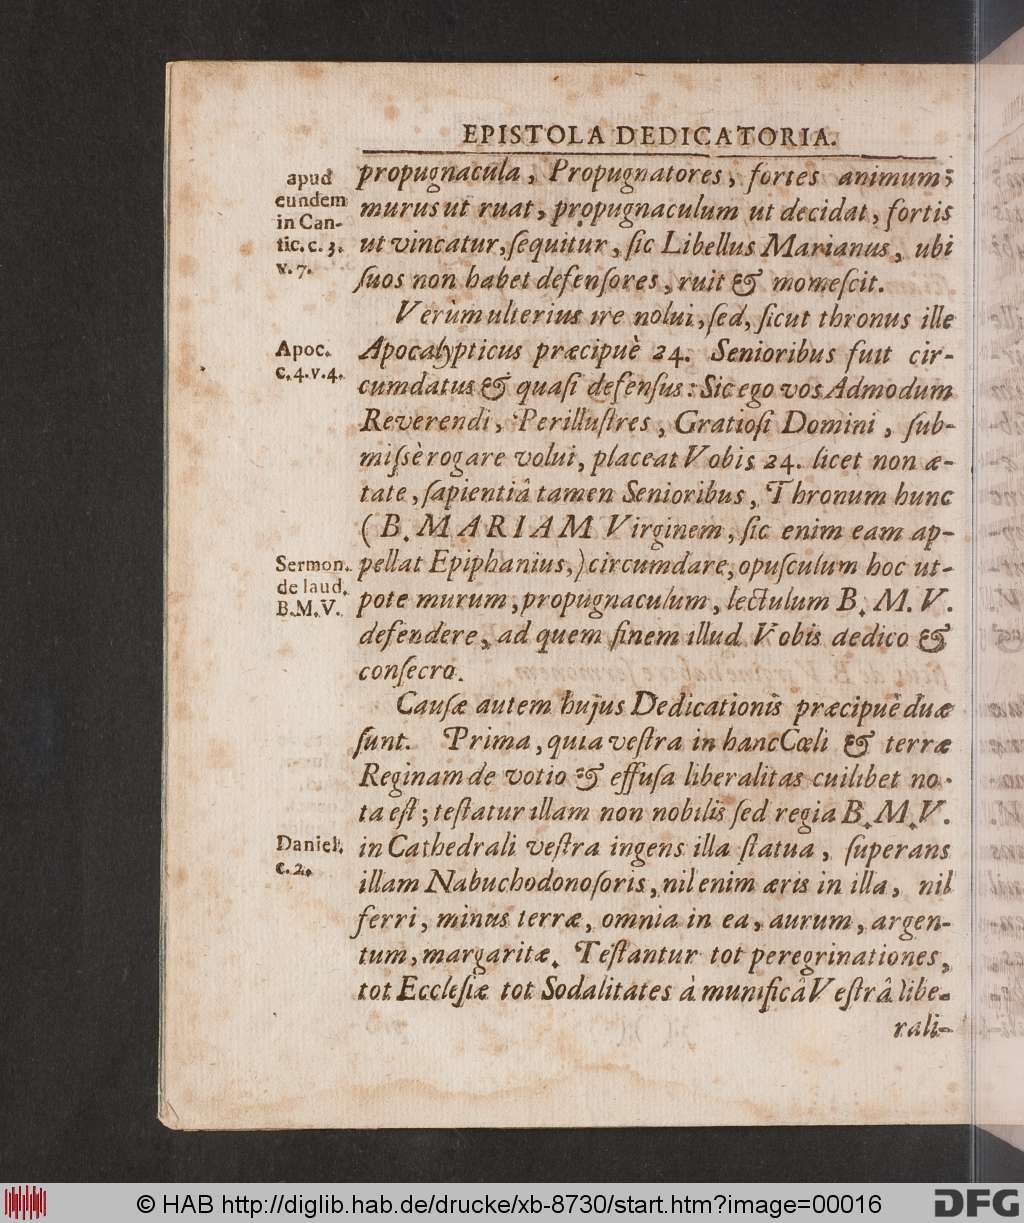 EPISTOLA DEDICATORIA.
apud
eundem
in Can-
tic. c. 3.
v. 7.
propugnacula, Propugnatores, fortes animum;
murus ut ruat, propugnaculum ut decidat, fortis
ut vincatur, ſequitur, ſic Libellus Marianus, ubi
ſuos non habet defenſores, ruit & momeſcit.
Verùm ulterius ire nolui, ſed, ſicut thronus ille
Apoc.
c. 4. v. 4.
Apocalypticus præcipuè 24. Senioribus fuit cir-
cumdatus & quaſi defenſus: Sic ego vos Admodum
Reverendi, Perilluſtres, Gratioſi Domini, ſub-
miſsè rogare volui, placeat Vobis 24. licet non æ-
tate, ſapientiâ tamen Senioribus, Thronum hunc
(B. MARIAM Virginem, ſic enim eam ap-
Sermon.
de laud.
B. M. V.
pellat Epiphanius,) circumdare, opuſculum hoc ut-
pote murum, propugnaculum, lectulum B. M. V.
defendere, ad quem finem illud Vobis dedico &
conſecro.
Cauſæ autem hujus Dedicationis præcipuè duæ
ſunt. Prima, quia veſtra in hanc Cœli & terræ
Reginam devotio & effuſa liberalitas cuilibet no-
ta eſt; teſtatur illam non nobilis ſed regia B. M. V.
Daniel.
c. 2.
in Cathedrali veſtra ingens illa ſtatua, ſuperans
illam Nabuchodonoſoris, nil enim æris in illa, nil
ferri, minus terræ, omnia in ea, aurum, argen-
tum, margaritæ. Teſtantur tot peregrinationes,
tot Eccleſiæ tot Sodalitates à munificâ Veſtrâ libe-
rali-
© HAB http://diglib.hab.de/drucke/xb-8730/start.htm?image=00016
DFG